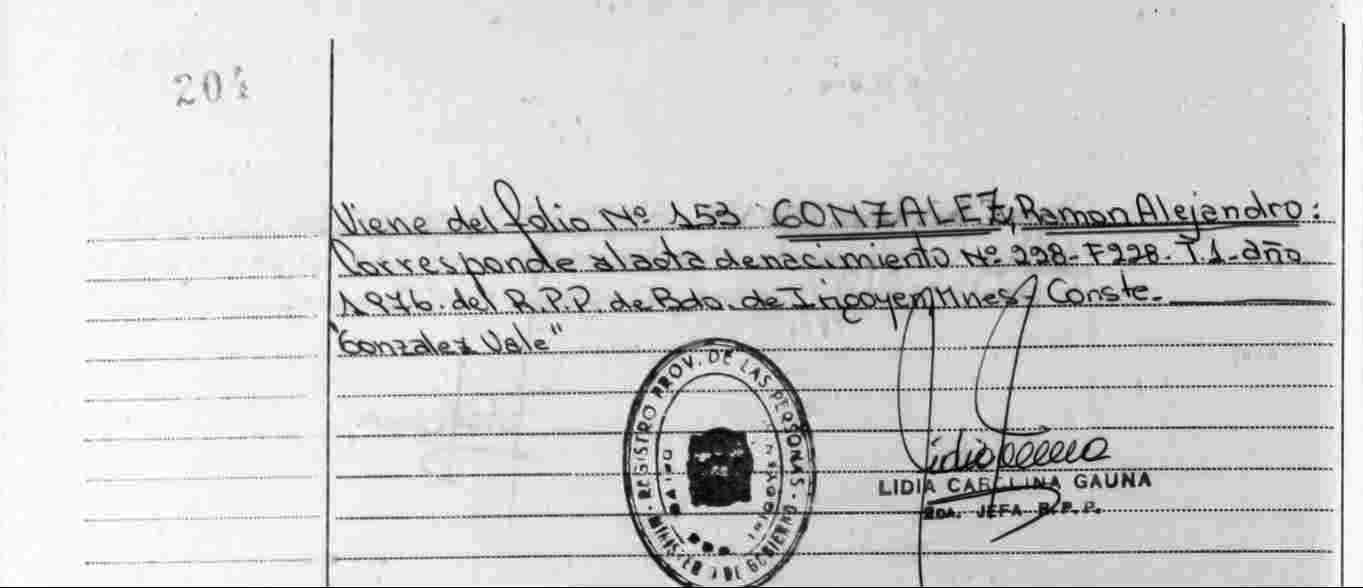 204
Viene del folio Nº 153 GONZALEZ, Ramon Alejandro:
Corresponde al acta de nacimiento Nº 228-F228-T.1-año
1976. del R.P.P. de Bdo. de Irigoyen Mnes/ Conste.
"Gonzalez Vale"
REGISTRO PROV. DE LAS PERSONAS - MINISTERIO DE GOBIERNO
IRIGOYEN
LIDIA CAROLINA GAUNA
2DA. JEFA R.P.P.